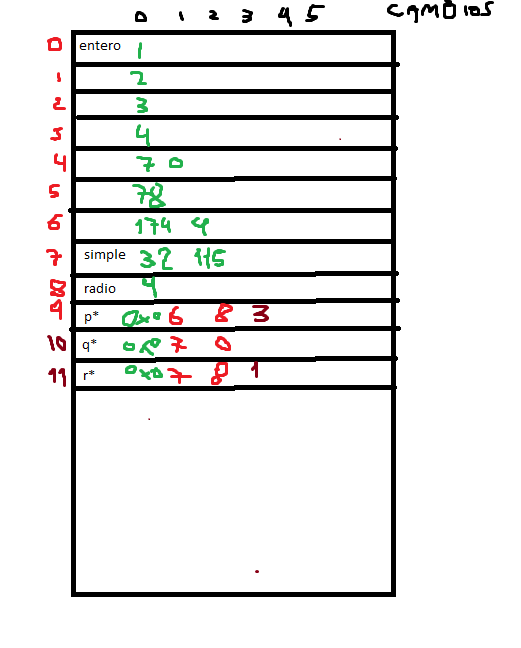 0 1 2 3 4 5 CAMBIOS
0 entero 1
1 2
2 3
3 4
4 7 0
5 78
6 174 4
7 simple 32 115
8 radio 4
9 p* 0x0 6 8 3
10 q* 0x0 7 0
11 r* 0x0 7 8 1